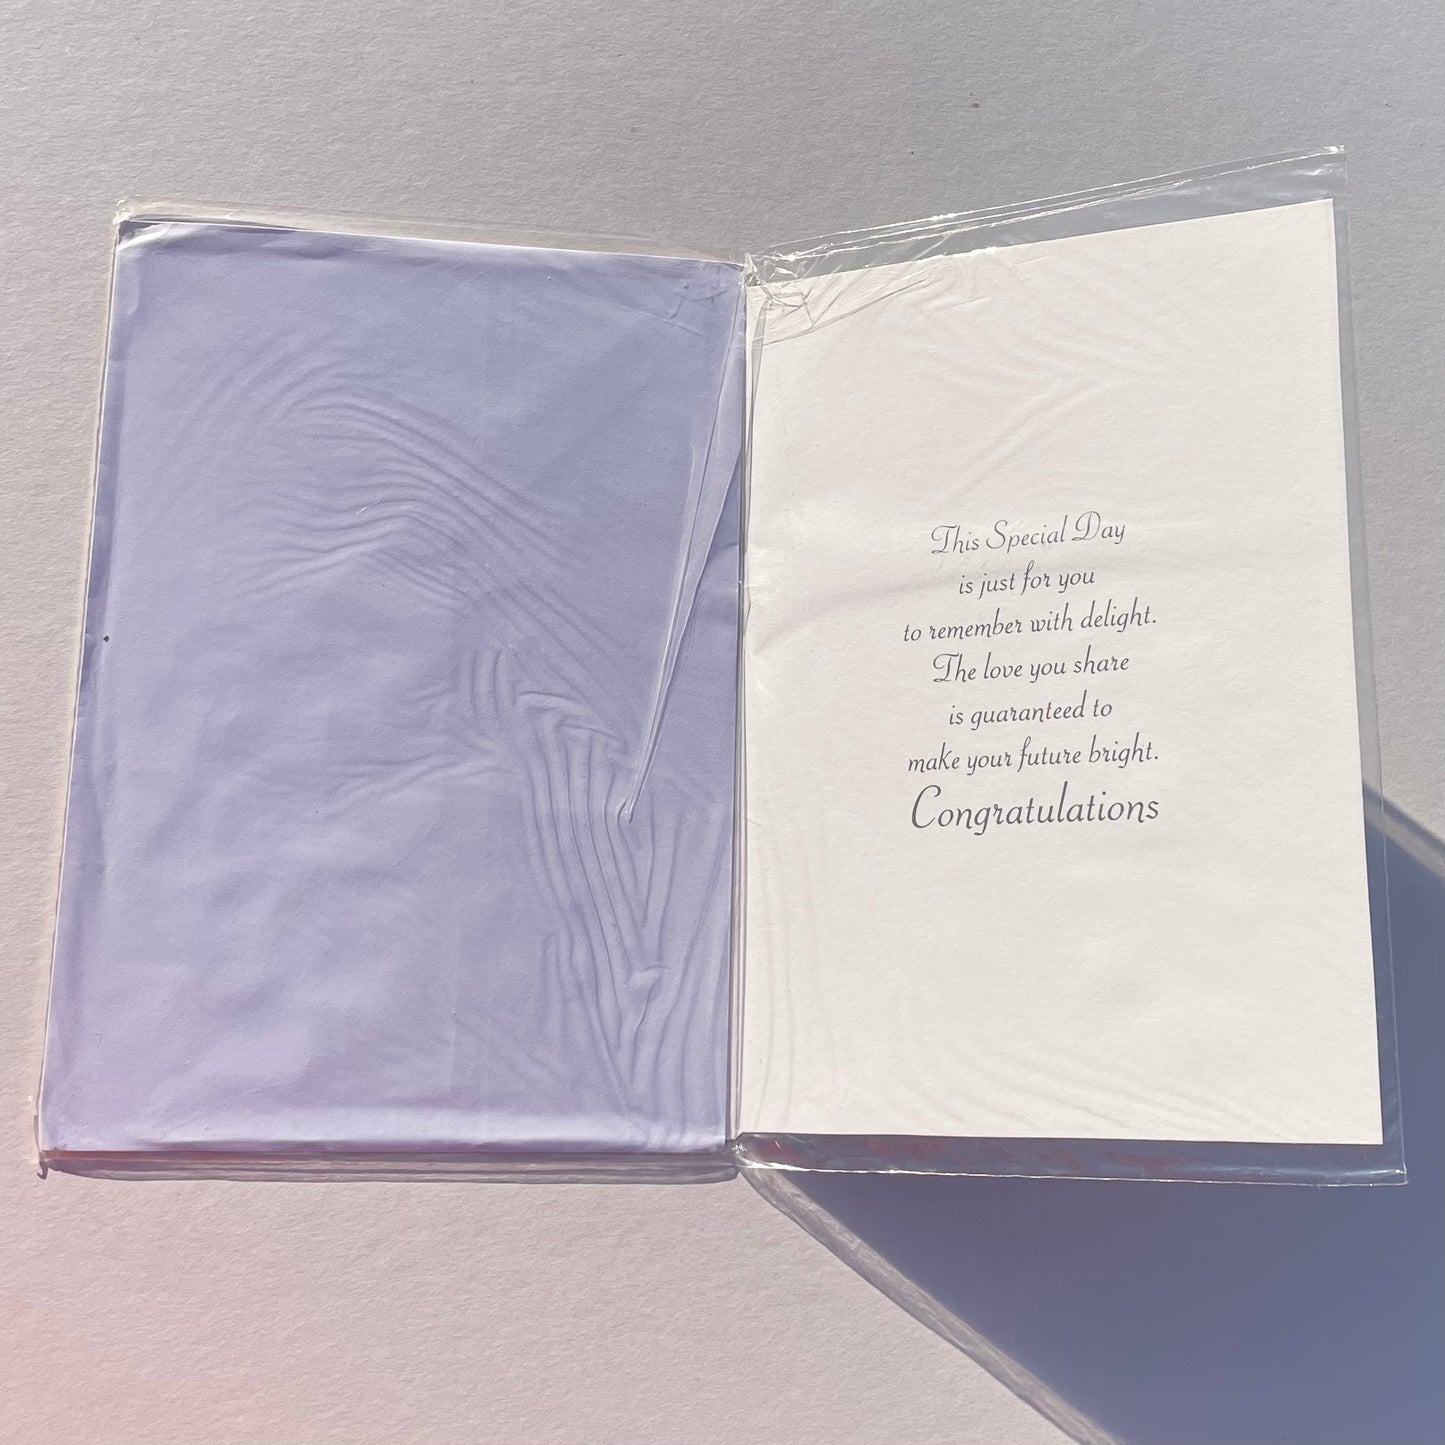 This Special Day
is just for you
to remember with delight.
The love you share
is guaranteed to
make your future bright.
Congratulations